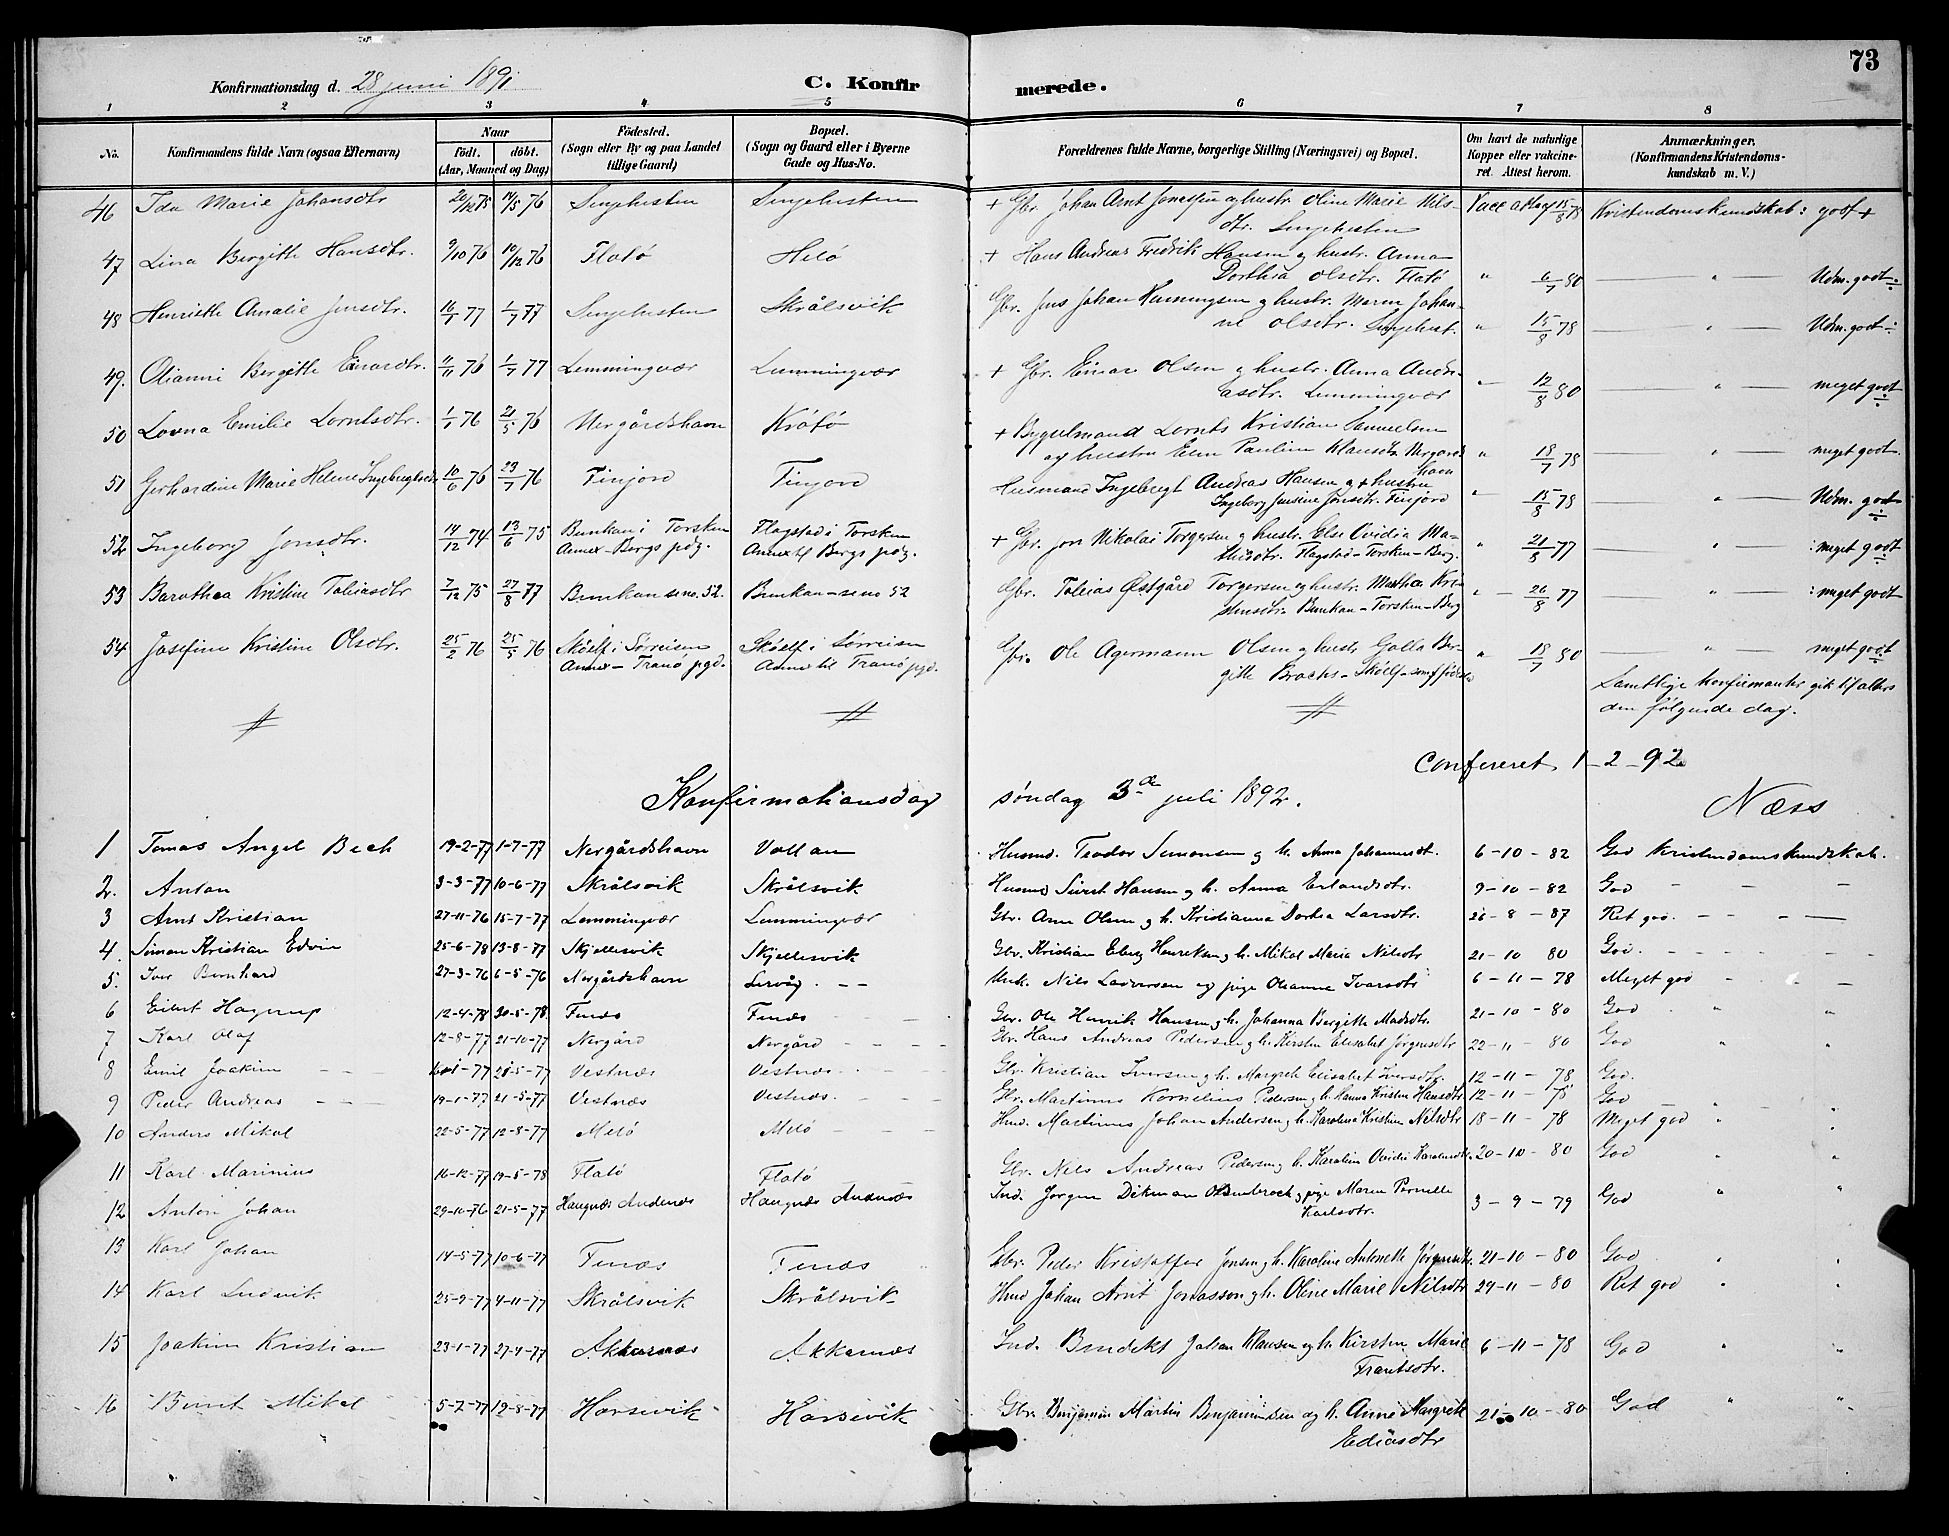 73
Konfirmationsdag d. 28 juni 1891
C. Konfirmerede.
1 2 3 4 5 6 7 8
No.
Konfirmandens fulde Navn (ogsaa Efternavn)
Naar
födt. döbt.
(Aar, Maaned og Dag)
Födested.
(Sogn eller By og paa Landet
tillige Gaard)
Bopæl.
(Sogn og Gaard eller i Byerne
Gade og Hus-No.
Forældrenes fulde Navne, borgerlige Stilling (Næringsvei) og Bopæl.
Om havt de naturlige
Kopper eller vakcine-
ret. Attest herom.
Anmærkninger.
(Konfirmandens Kristendoms-
kundskab m. V.)
46 Ida Marie Johansdtr 20/12 75 14/5 76 + Gbr. Johan Arnt og hustr. Oline Marie Nils- 15/8 78 Kristendomskundskab: godt +
dtr.
47 Lina Bergitte Hansdtr. 9/10 76 10/12 76 Flatö + Hans Andreas Fredrik Hansen og hustr. Anna
Dorthea Olsdtr. Flatö " 6/7 80 " Udm. godt ÷
48 Henriette Amalie Jensdtr. 77 1/7 77 Skrålsvik Gbr. Jens Johan Henningsen og hustr. Maren Johan-
ne Olsdtr. " 15/8 78 " Udm. godt ÷
49. Olianni Bergitte Einardtr. 11/11 76 1/7 77 Lemmingvær Lemmingvær + Gbr. Einar Olsen og hustr. Anna Andre-
asdtr. Lemmingvær " 12/8 80 " meget godt ÷
50 Lovna Emilie Lorntsdtr. 1/1 76 21/5 76 Nergårdshavn Kröfö + Bygselmand Lornts Kristian Samuelsen
og hustru Elen Pauline Klausdtr. Nergårds
havn " 18/7 78 " meget godt.
51 Gerhardine Marie Helene Ingebrigtsdtr 10/6 76 23/7 76 Finjord Finjord Husmand Ingebrigt Andreas Hansen og + hustru
Ingeborg Jensine Jonsdtr. Finjord " 15/8 78 " Udm. godt ÷
52 Ingeborg Jonsdtr. 14/12 74 13/6 75 Bunkan i Torsken Flagstad i Torsken + Gbr. Jon Nikolai Torgersen og hustr. Else Ovidia Ma-
Annex - Bergs pdg. Annex til Bergs pdg. thisdtr. Flagstad - Torsken - Berg. " 21/8 77 : meget godt ÷
53 Barothea Kristine Tobiasdtr 7/12 75 27/8 77 Bunkan se no. 52. Bunkan - se no 52 Gbr. Tobias Østgård Torgersen og hustr. Martha Kri-
stensdtr. Bunkan - Torsken - Berg " 26/8 77 : meget godt
54 Josefine Kristine Olsdtr. 25/2 76 25/5 76 Sköelf i Sørreisen Sköelf i Sørreisen Gbr. Ole Agermann Olsen og hustr. Golla Ber-
Annex - Tranö pgd. Annex til Tranö pgd. gitte Brochs - Sköelf - som födested " 18/7 80 " meget godt ÷
Samtlige konfirmanter gik til alters
den følgende dag.
Confereret 1 - 2 - 92
Næss
Konfirmationsdag søndag 3de juli 1892.
1 Tomas Angel Bech 19-2-77 1-7-77 Nergårdshavn Vollan Husmd. Teodor Simonsen og h. Anna Johannesdt. 6-10-82 God Kristendomskundskab.
2. Anton 3-3-77 10-6-77 Skrålsvik Skrålsvik Husmd Sivert Hansen og h. Anna Erlandsdtr. 9-10-82 God - - -
3 Arnt Kristian 27-11-76 15-7-77 Lemmingvær Lemmingvær Gbr. Arne Olsen og h. Kristianna Dortea Larsdtr. 26-8-87 Ret god. - - -
4. Simon Kristian Edvin 25-6-78 13-8-77 Skjellesvik Skjellesvik Gbr. Kristian Eberg Henriksen og h. Mikal Maria Nilsdtr 21-10 80 God. - - -
5. Iver Bernhard 27-3-76 6-5-76 Nergårdshavn Lervåg. - - Unk. Nils Ladversen og pige Olianna Ivarsdtr 6-11-78 Meget god - - -
6 Eilert Hagerup 12-4-78 30-5-78 Finnæs Finnæs - - Gbr. Ole Henrik Hansen og h. Johanna Bergitte Madsdtr. 21-10-80 God " "
7 Karl Olaf 12-8-77 21-10-77 Nergård Nergård - - - Gbr. Hans Andreas Pedersen og h. Kirsten Elisabet Jørgensdtr 22-11-80 God " "
8 Emil Joakim - - 21-5-77 Vestnæs Vestnæs - - Gbr. Kristian Iversen og h. Margrete Elisabet Iversdtr. 12-11-78 God.
9 Peder Andreas - - 19-1-77 21-5-77 Vestnæs Vestnæs. - - Gbr. Martinus Kornelius Pedersen og h. Hanna Kristine Hansdtr. 12-11-78 God " "
10 Anders Mikal 22-5-77 12-8-77 Melö Melö - - Husmd. Martinus Johan Andersen og h. Karoline Kristine Nilsdtr 18-11-78 Meget god " "
11 Karl Marinius 16-12-77 19-5-78 Flatö Flatö Gbr. Nils Andreas Pedersen og h. Karoline Ovidie 20-10-80 God " "
12 Anton Johan 29-10-76 21-5-77 Haugnæs Andenæs Haugnæs Andenæs Ind. Jörgen Ditman og pige Maren Pernille
Karlsdtr. 3-9-79 God " "
13 Karl Johan 14-5-77 10-6-77 Finnæs Finnæs Gbr. Peder Kristoffer Jensen og h. Karoline Antonette Jörgensdtr. 21-10-80 God " "
14 Karl Ludvik 25-9-77 4-11-77 Skrålsvik Skrålsvik Husmd Johan Arnt Jonasson og h. Oline Marie Nilsdtr 29-11-80 Ret god " "
15 Joakim Kristian 23-1-77 27-4-77 Akkarnæs Akkarnæs Ind. Bendikt Johan Klausen og h. Kirsten Marie
Frantsdtr. 6-11-78 God " "
16 Bernt Mikal 5-7-77 19-8-77 Harsevik Harsevik Gbr. Benjamin Martin Benjaminsen og h. Anne Margrete
Ediasdtr 21-10-80 God " "